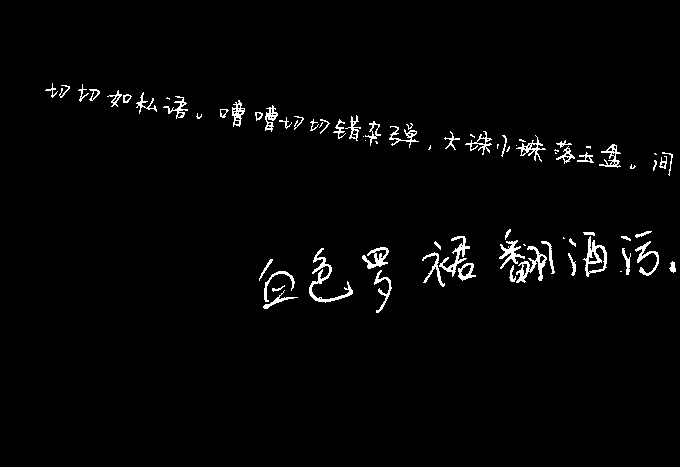 切切如私语。嘈嘈切切错杂弹,大珠小珠落玉盘。间
血色罗裙翻酒污.